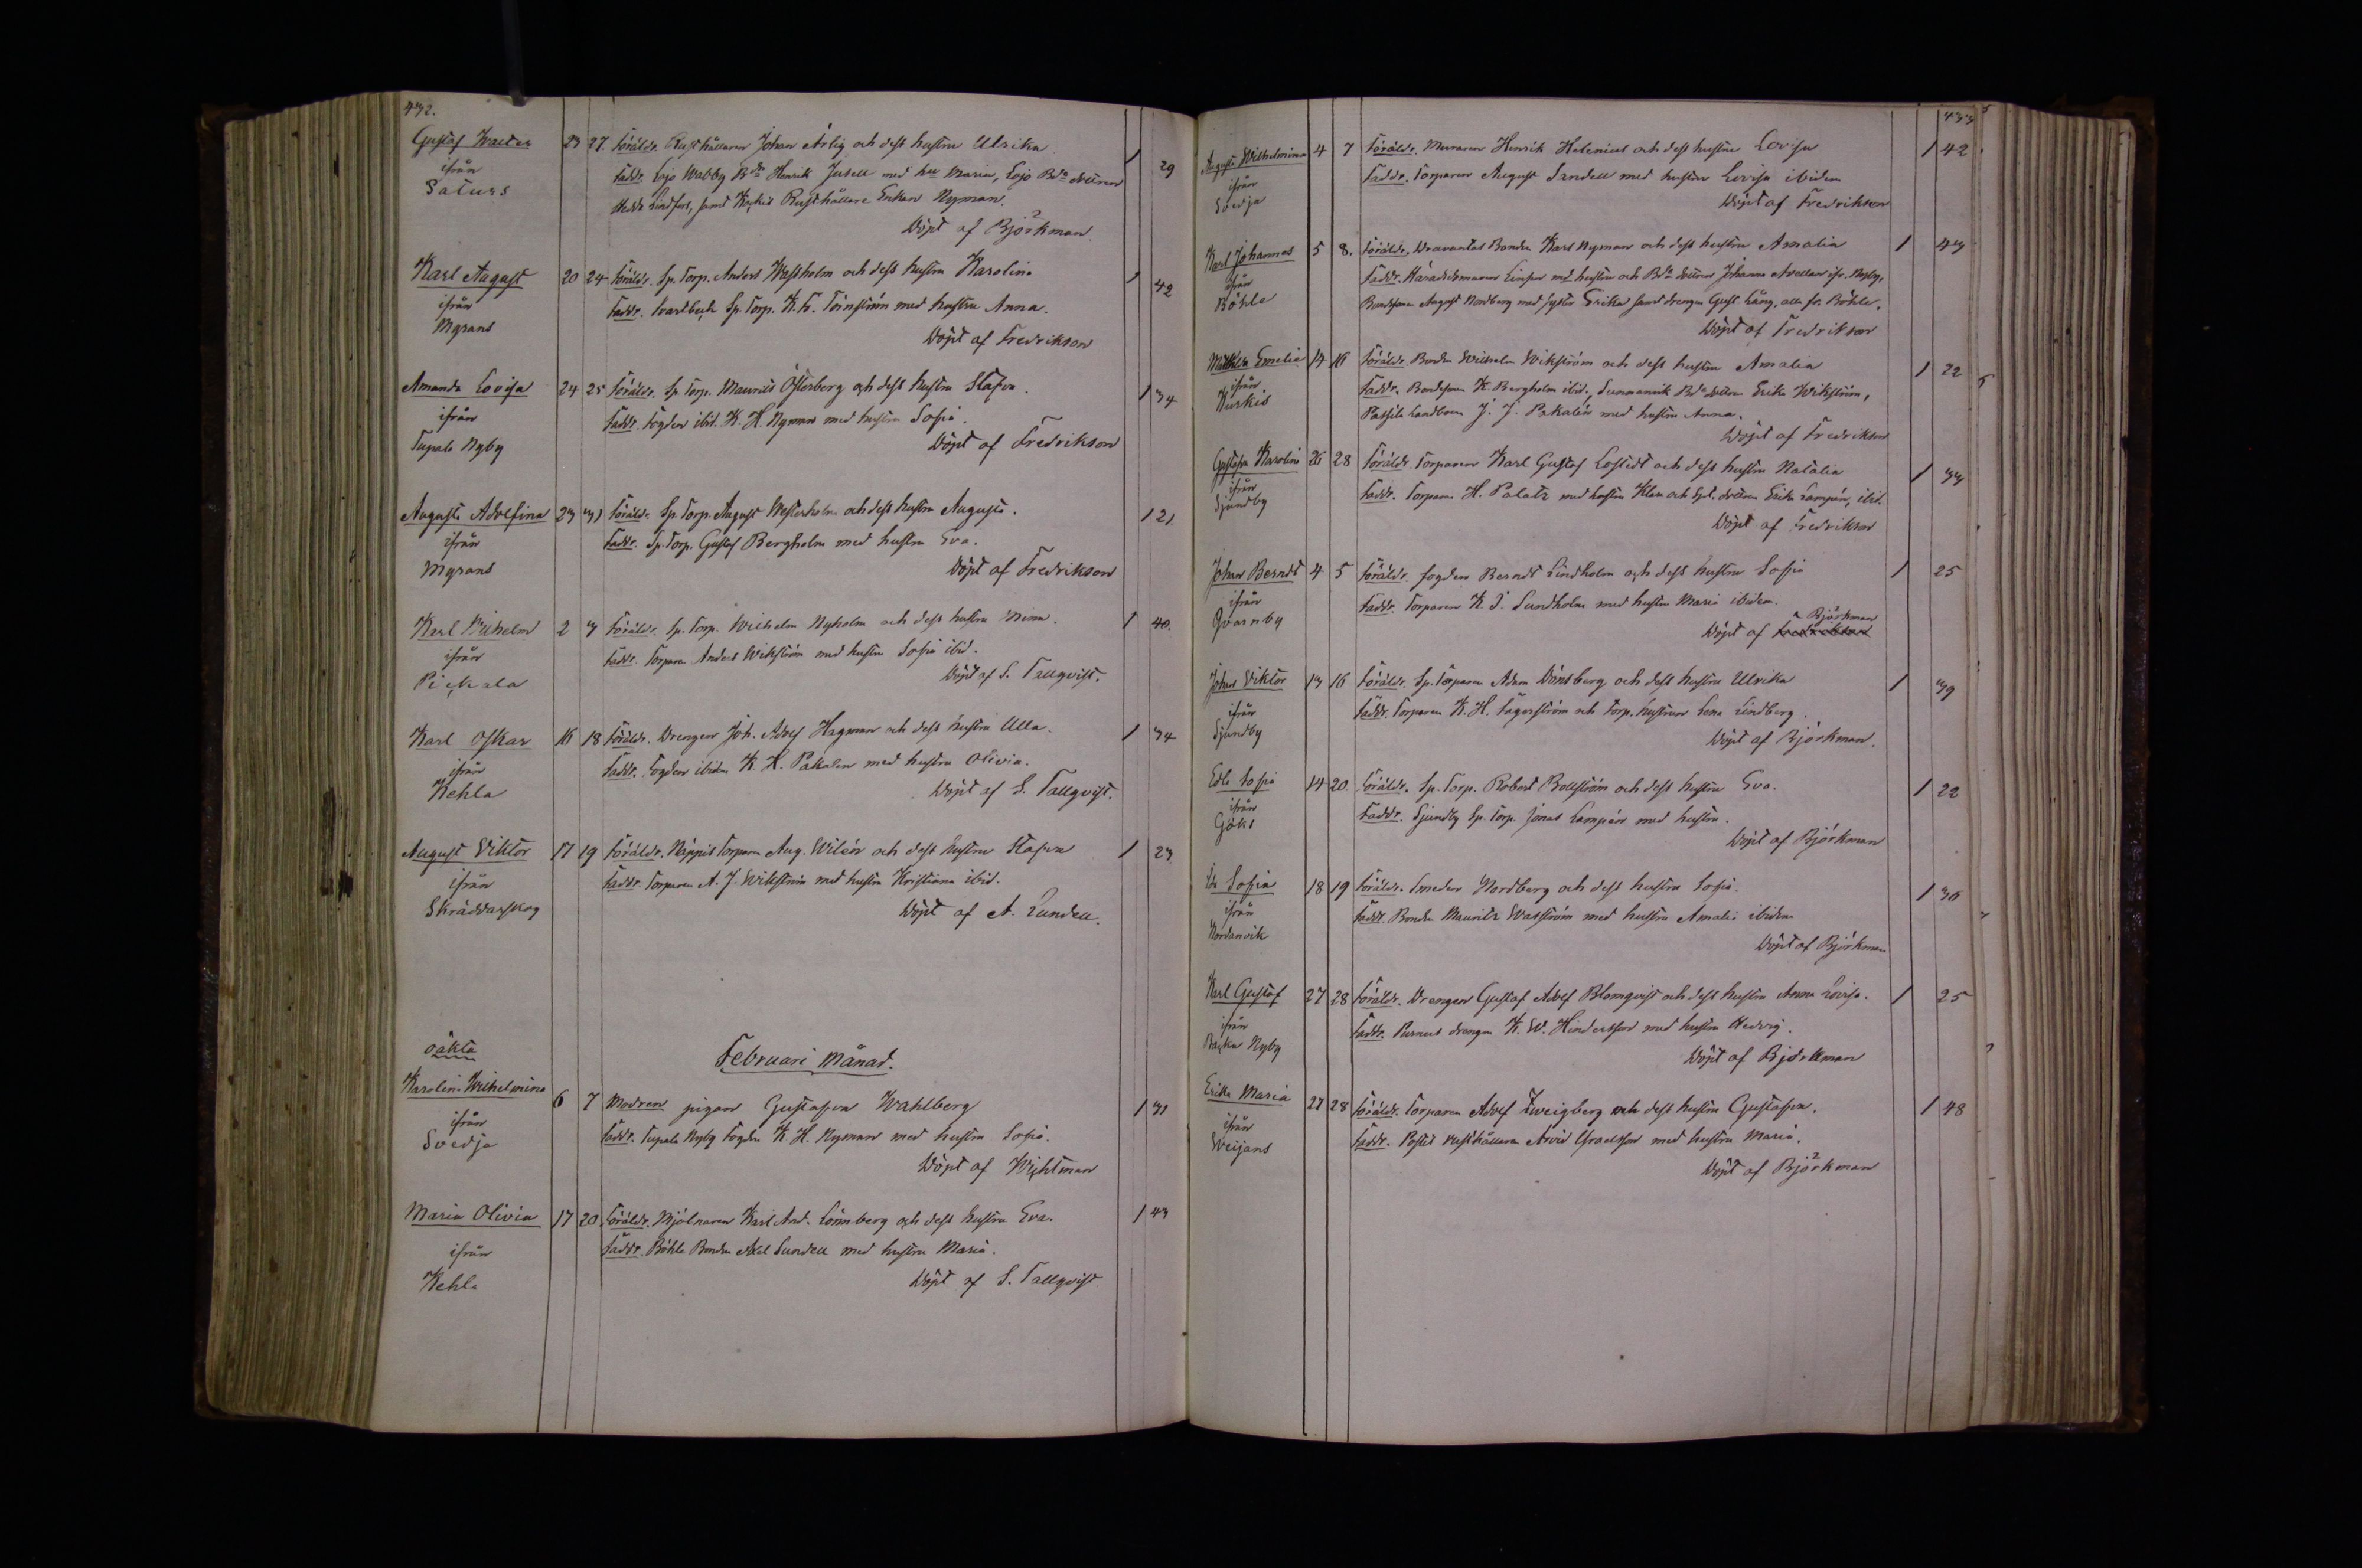 432.
Gustaf Walter 23 27. Föräldr. Rusthållaren Johan Ärlig och dess hustru Ulrika 1 29
ifrån
Faddr. Lojo Wabby Bdn Henrik Jusell med hu Maria, Lojo Bde dottren
Saturs
Hedda Lindfors, samt Kyrkis Rusthållare Enkan Nyman.
Döpt af Björkman
Karl August 20 24 Föräldr. Sp. Torp. Anders Westholm och dess hustru Karolina 1 42
ifrån
Faddr. Svartbeck Sp. Torp. K. F. Törnström med hustru Anna.
Myrans
Döpt af Fredrikson
Amanda Lovisa 24 25 Föräldr. Sp. Torp. Maurits Österberg och dess hustru Stafva. 1 34
ifrån
Faddr. Fogden ibid. K. H. Nyman med hustru Sofia.
Tupala Nyby
Döpt af Fredrikson
Augusta Adolfina 23 31 Föräldr. Sp. Torp. August Westerholm och dess hustru Augusta. 1 21
ifrån
Faddr. Sp. Torp. Gustaf Bergholm med hustru Eva.
Myrans
Döpt af Fredrikson
Karl Wilhelm 2 3 Föräldr. Sp. Torp. Wilhelm Nyholm och dess hustru Mina. 1 40.
ifrån
Faddr. Torparen Anders Wikström med hustru Sofia ibid.
Pickala
Döpt af S. Tallqvist.
Karl Oskar 16 18 Föräldr. Drengen Joh. Adolf Hagman och dess hustru Ulla. 1 34
ifrån
Faddr. Fogden ibidem K. H. Pakalen med hustru Olivia.
Kehla
Döpt af S. Tallqvist.
August Viktor 17 19 Föräldr. Näppis Torparen Aug. Wilén och dess hustru Stafva 1 23
ifrån
Faddr. Torparen A. J. Wikström med hustru Kristiana ibid.
Skräddarskog
Döpt af A. Lundell.
Februari Månad.
oäkta
Karolina Wilhelmina 6 7 Modren pigan Gustafva Wahlberg 1 31
ifrån
Faddr. Tupala Nyby Fogden K. H. Nyman med hustru Sofia.
Svedja
Döpt af Wichtman
Maria Olivia 17 20 Föräldr. Mjölnaren Karl And. Lönnberg och dess hustru Eva. 1 43
ifrån
Faddr. Böhle Bonden Axel Sundell med hustru Maria.
Kehla
Döpt af S. Tallqvist
433
Augusta Wilhelmina 4 7 Föräldr. Muraren Henrik Helenius och dess hustru Lovisa 1 42
ifrån
Faddr. Torparen August Sandell med hustru Lovisa ibidem
Svedja
Döpt af Fredrikson
Karl Johannes 5 8. Föräldr. Bonden Karl Nyman och dess hustru Amalia 1 43
ifrån
Faddr. Häradsdomaren med hustru och Bde dottren Johanna Avellan ifr. Nyby,
Böhle
Bondsonen August Nordberg med syster Erika samt drengen Gust. Lång, alla fr. Böhle.
Döpt af Fredrikson
Matilda Emelia 14 16 Föräldr. Bonden Wilhelm Wikström och dess hustru Amalia 1 22
ifrån
Faddr. Bondesonen K. Bergholm ibid, Sunnanvik Bde dottren Erika Wikström,
Kurkis
Passila Landbonn J. J. Pakalén med hustru Anna.
Döpt af Fredrikson
Gustafva Karolina 26 28 Föräldr. Torparen Karl Gustaf Lostedt och dess hustru Natalia 1 33
ifrån
Faddr. Torparen H. Palatz med hustru Klara och Spt. dottren Erika Lampén, ibid.
Sjundby
Döpt af Fredrikson
Johan Berndt 4 5 Föräldr. fogden Berndt Lindholm och dess hustru Sofia 1 25
ifrån
Faddr. Torparen K. J. Sundholm med hustru Maria ibidem.
Qvarnby
Döpt af Fredrikson Björkman
Johan Viktor 13 16 Föräldr. Sp. Torparen Adam Dönsberg och dess hustru Ulrika 1 39
ifrån
Faddr. Torparen K. H. Fagerström och Torp. hustrun Lena Lindberg.
Sjundby
Döpt af Björkman.
Edla Sofia 14 20 Föräldr. Sp. Torp. Robert Bollström och dess hustru Eva. 1 22
ifrån
Faddr. Sjundby Sp. Torp. Jonas Lampén med hustru.
Göks
Döpt af Björkman
Ida Sofia 18 19 Föräldr. Smeden Nordberg och dess hustru Sofia. 1 36
ifrån
Faddr. Bonden Mauritz Wasström med hustru Amalia ibidem
Nordanvik
Döpt af Björkman
Karl Gustaf 27 28 Föräldr. Drengen Gustaf Adolf Blomqvist och dess hustru Anna Lovisa. 1 25
ifrån
Faddr. Purnus drengen K. W. Hindersson med hustru Hedvig.
Backa Nyby
Döpt af Björkman
Erika Maria 27 28 Föräldr. Torparen Adolf Zweigberg och dess hustru Gustafva. 1 48
ifrån
Faddr. Postis rusthållaren Arvid Israelsson med hustru Maria.
Sveijans
Döpt af Björkman